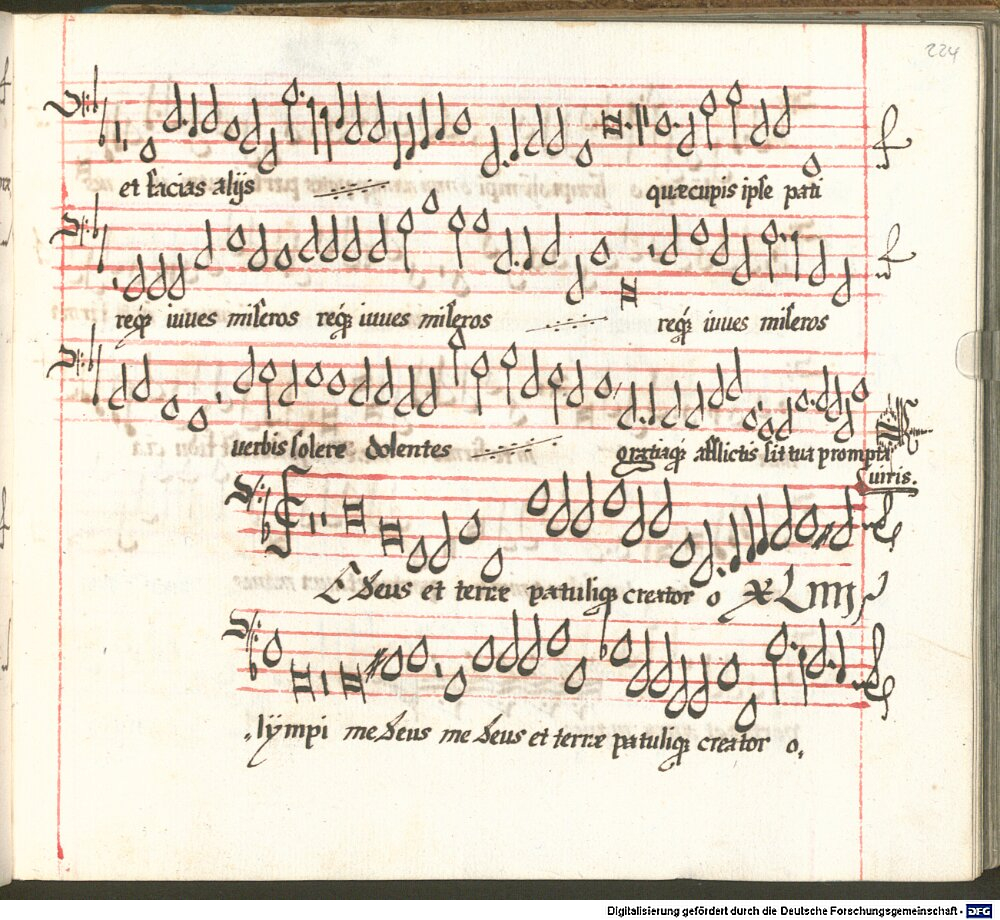 224
et facias alijs quæcupis ipse pati
req; iuues miseros req; iuues miseros req; iuues miseros
uerbis solere dolentes gratiaq; afflictis sit tua prompta
uiris.
E deus et terræ patuliq; creator o XLIIII
lÿmpi me deus me deus et terræ patuliq; creator o,
Digitalisierung gefördert durch die Deutsche Forschungsgemeinschaft - DFG